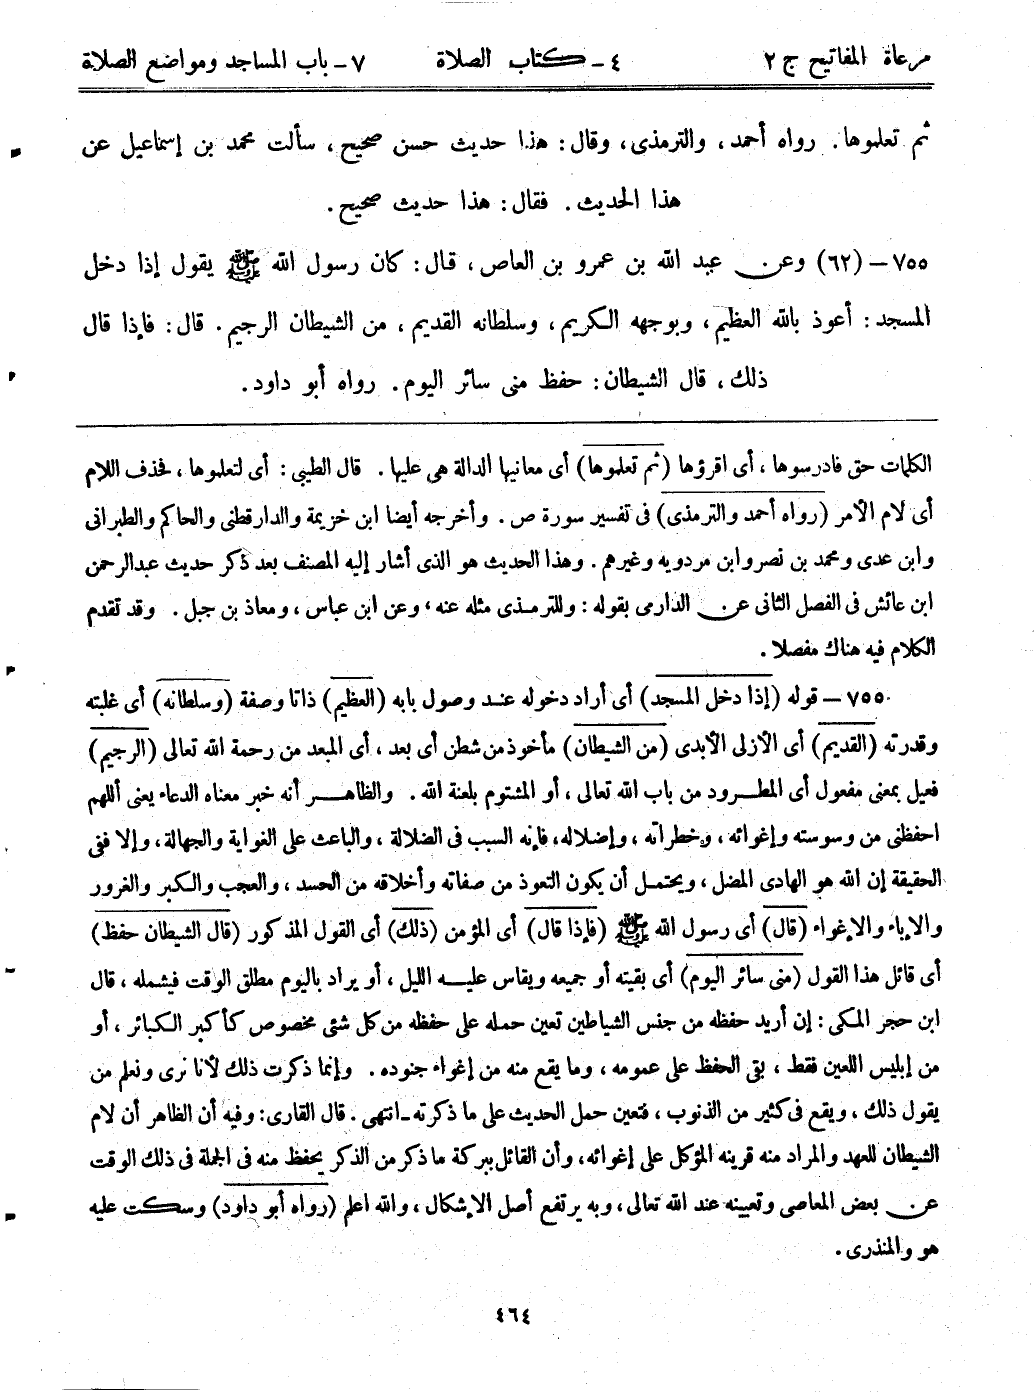 مرعاة المفاتيح ج ٢ ٤ - كتاب الصلاة ٧ - باب المساجد ومواضع الصلاة
ثم تعلموها. رواه أحمد، والترمذى، وقال: هذا حديث حسن صحيح، سألت محمد بن إسماعيل عن
هذا الحديث. فقال: هذا حديث صحيح.
٧٥٥ - (٦٢) وعن عبد الله بن عمرو بن العاص، قال: كان رسول الله ﷺ يقول إذا دخل
المسجد: أعوذ بالله العظيم، وبوجهه الكريم، وسلطانه القديم، من الشيطان الرجيم. قال: فإذا قال
ذلك، قال الشيطان: حفظ منى سائر اليوم. رواه أبو داود.
الكلمات حق فادرسوها، أى اقرؤها (ثم تعلموها) أى معانيها الدالة هى عليها. قال الطيبي: أى لتعلموها، فحذف اللام
أى لام الأمر (رواه أحمد والترمذى) فى تفسير سورة ص. وأخرجه أيضا ابن خزيمة والدارقطنى والحاكم والطبرانى
وابن عدى ومحمد بن نصر وابن مردويه وغيرهم. وهذا الحديث هو الذى أشار إليه المصنف بعد ذكر حديث عبدالرحمن
ابن عائش فى الفصل الثانى عن الدارمى بقوله: وللترمذى مثله عنه، وعن ابن عباس، ومعاذ بن جبل. وقد تقدم
الكلام فيه هناك مفصلا.
٧٥٥ - قوله (إذا دخل المسجد) أى أراد دخوله عند وصول بابه (العظيم) ذاتا وصفة (وسلطانه) أى غلبته
وقدرته (القديم) أى الأزلى الأبدى (من الشيطان) مأخوذ من شطن أى بعد، أى المبعد من رحمة الله تعالى (الرجيم)
فعيل بمعنى مفعول أى المطرود من باب الله تعالى، أو المشتوم بلعنة الله. والظاهر أنه خبر معناه الدعاء يعنى أللهم
احفظنى من وسوسته وإغوائه، وخطراته، وإضلاله، فإنه السبب فى الضلالة، والباعث على الغواية والجهالة، وإلا ففى
الحقيقة إن الله هو الهادى المضل، ويحتمل أن يكون التعوذ من صفاته وأخلاقه من الحسد، والعجب والكبر والغرور
والإباء والإغواء (قال) أى رسول الله ﷺ (فإذا قال) أى المؤمن (ذلك) أى القول المذكور (قال الشيطان حفظ)
أى قائل هذا القول (منى سائر اليوم) أى بقيته أو جميعه ويقاس عليه الليل، أو يراد باليوم مطلق الوقت فيشمله، قال
ابن حجر المكى: إن أريد حفظه من جنس الشياطين تعين حمله على حفظه من كل شئى مخصوص كأكبر الكبائر، أو
من إبليس اللعين فقط، بقى الحفظ على عمومه، وما يقع منه من إغواء جنوده. وإنما ذكرت ذلك لأنا نرى ونعلم من
يقول ذلك، ويقع فى كثير من الذنوب، فتعين حمل الحديث على ما ذكرته - انتهى. قال القارى: وفيه أن الظاهر أن لام
الشيطان للعهد والمراد منه قرينه المؤكل على إغوائه، وأن القائل ببركة ما ذكر من الذكر يحفظ منه فى الجملة فى ذلك الوقت
عن بعض المعاصى وتعيينه عند الله تعالى، وبه يرتفع أصل الإشكال، والله اعلم (رواه أبو داود) وسكت عليه
هو والمنذرى.
٤٦٤